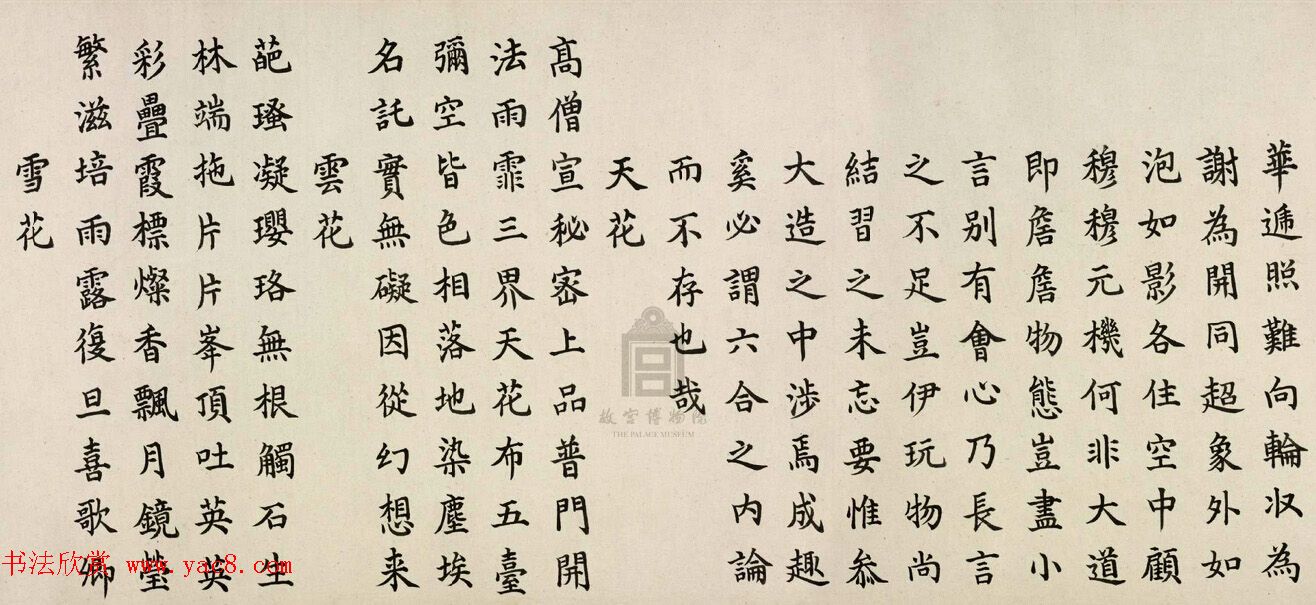 華遞照難向輪収為
謝為開同超象外如
泡如影各住空中顧
穆穆元機何非大道
即詹詹物態豈盡小
言别有會心乃長言
之不足豈伊玩物尚
結習之未忘要惟叅
大造之中涉焉成趣
奚必謂六合之内論
而不存也哉
天花
高僧宣秘密上品普門開
法雨霏三界天花布五臺
彌空皆色相落地染塵埃
名託實無礙因從幻想来
雲花
葩瑵凝瓔珞無根觸石生
林端拖片片峯頂吐英英
彩疊霞標燦香飄月鏡瑩
繁滋培雨露復旦喜歌卿
雪花
故宫博物院
THE PALACE MUSEUM
书法欣赏 www.yac8.com